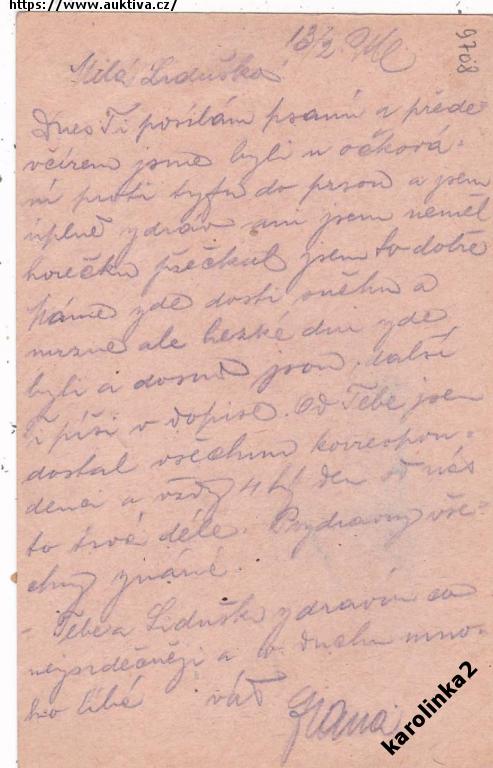 https://www.auktiva.cz/
9708
13/2
Milá Liduško!
Dnes Ti posílám psaní a přede-
včírem jsme byli u očková-
ní proti tyfu do prsou a jsem
úplně zdráv ani jsem neměl
horečku přečkal jsem to dobře
Máme zde dosti sněhu a
mrzne ale hezké dni zde
byli a dosud jsou, další
Ti píši v dopise. Od Tebe jsem
dostal všechnu korrespon-
denci a vždy 4tý den od nás
to trvá déle. Pozdravuj vše-
chny známé.
Tebe a Lidušku zdravím co
nejsrdečněji a v duchu mno-
ho líbá váš
karolinka2